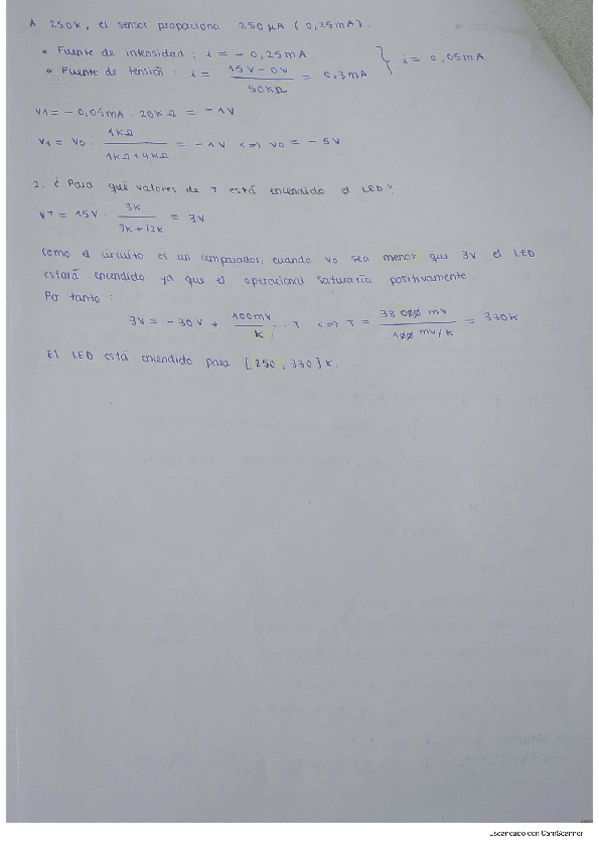 A 250K, el sensor propociona 250 µA (0,25mA).
• Fuente de intensidad : i = - 0,25mA
• Fuente de tensión : i = 15V - 0V / 50KΩ = 0,3mA } i = 0,05mA
V1 = - 0,05mA · 20KΩ = - 1V
V1 = V0 · 1KΩ / 1KΩ + 4KΩ = - 1V <=> V0 = - 5V
2. ¿Para qué valores de T está encendido el LED?
V+ = 15V · 3K / 3K + 12K = 3V
Como el circuito es un comparador, cuando Vo sea menor que 3V el LED
estará encendido ya que el operacional saturaría positivamente.
Por tanto :
3V = - 30V + 100mV / K · T <=> T = 33000 mV / 100 mV/K = 330K
El LED está encendido para [250, 330]K.
Escaneado con CamScanner